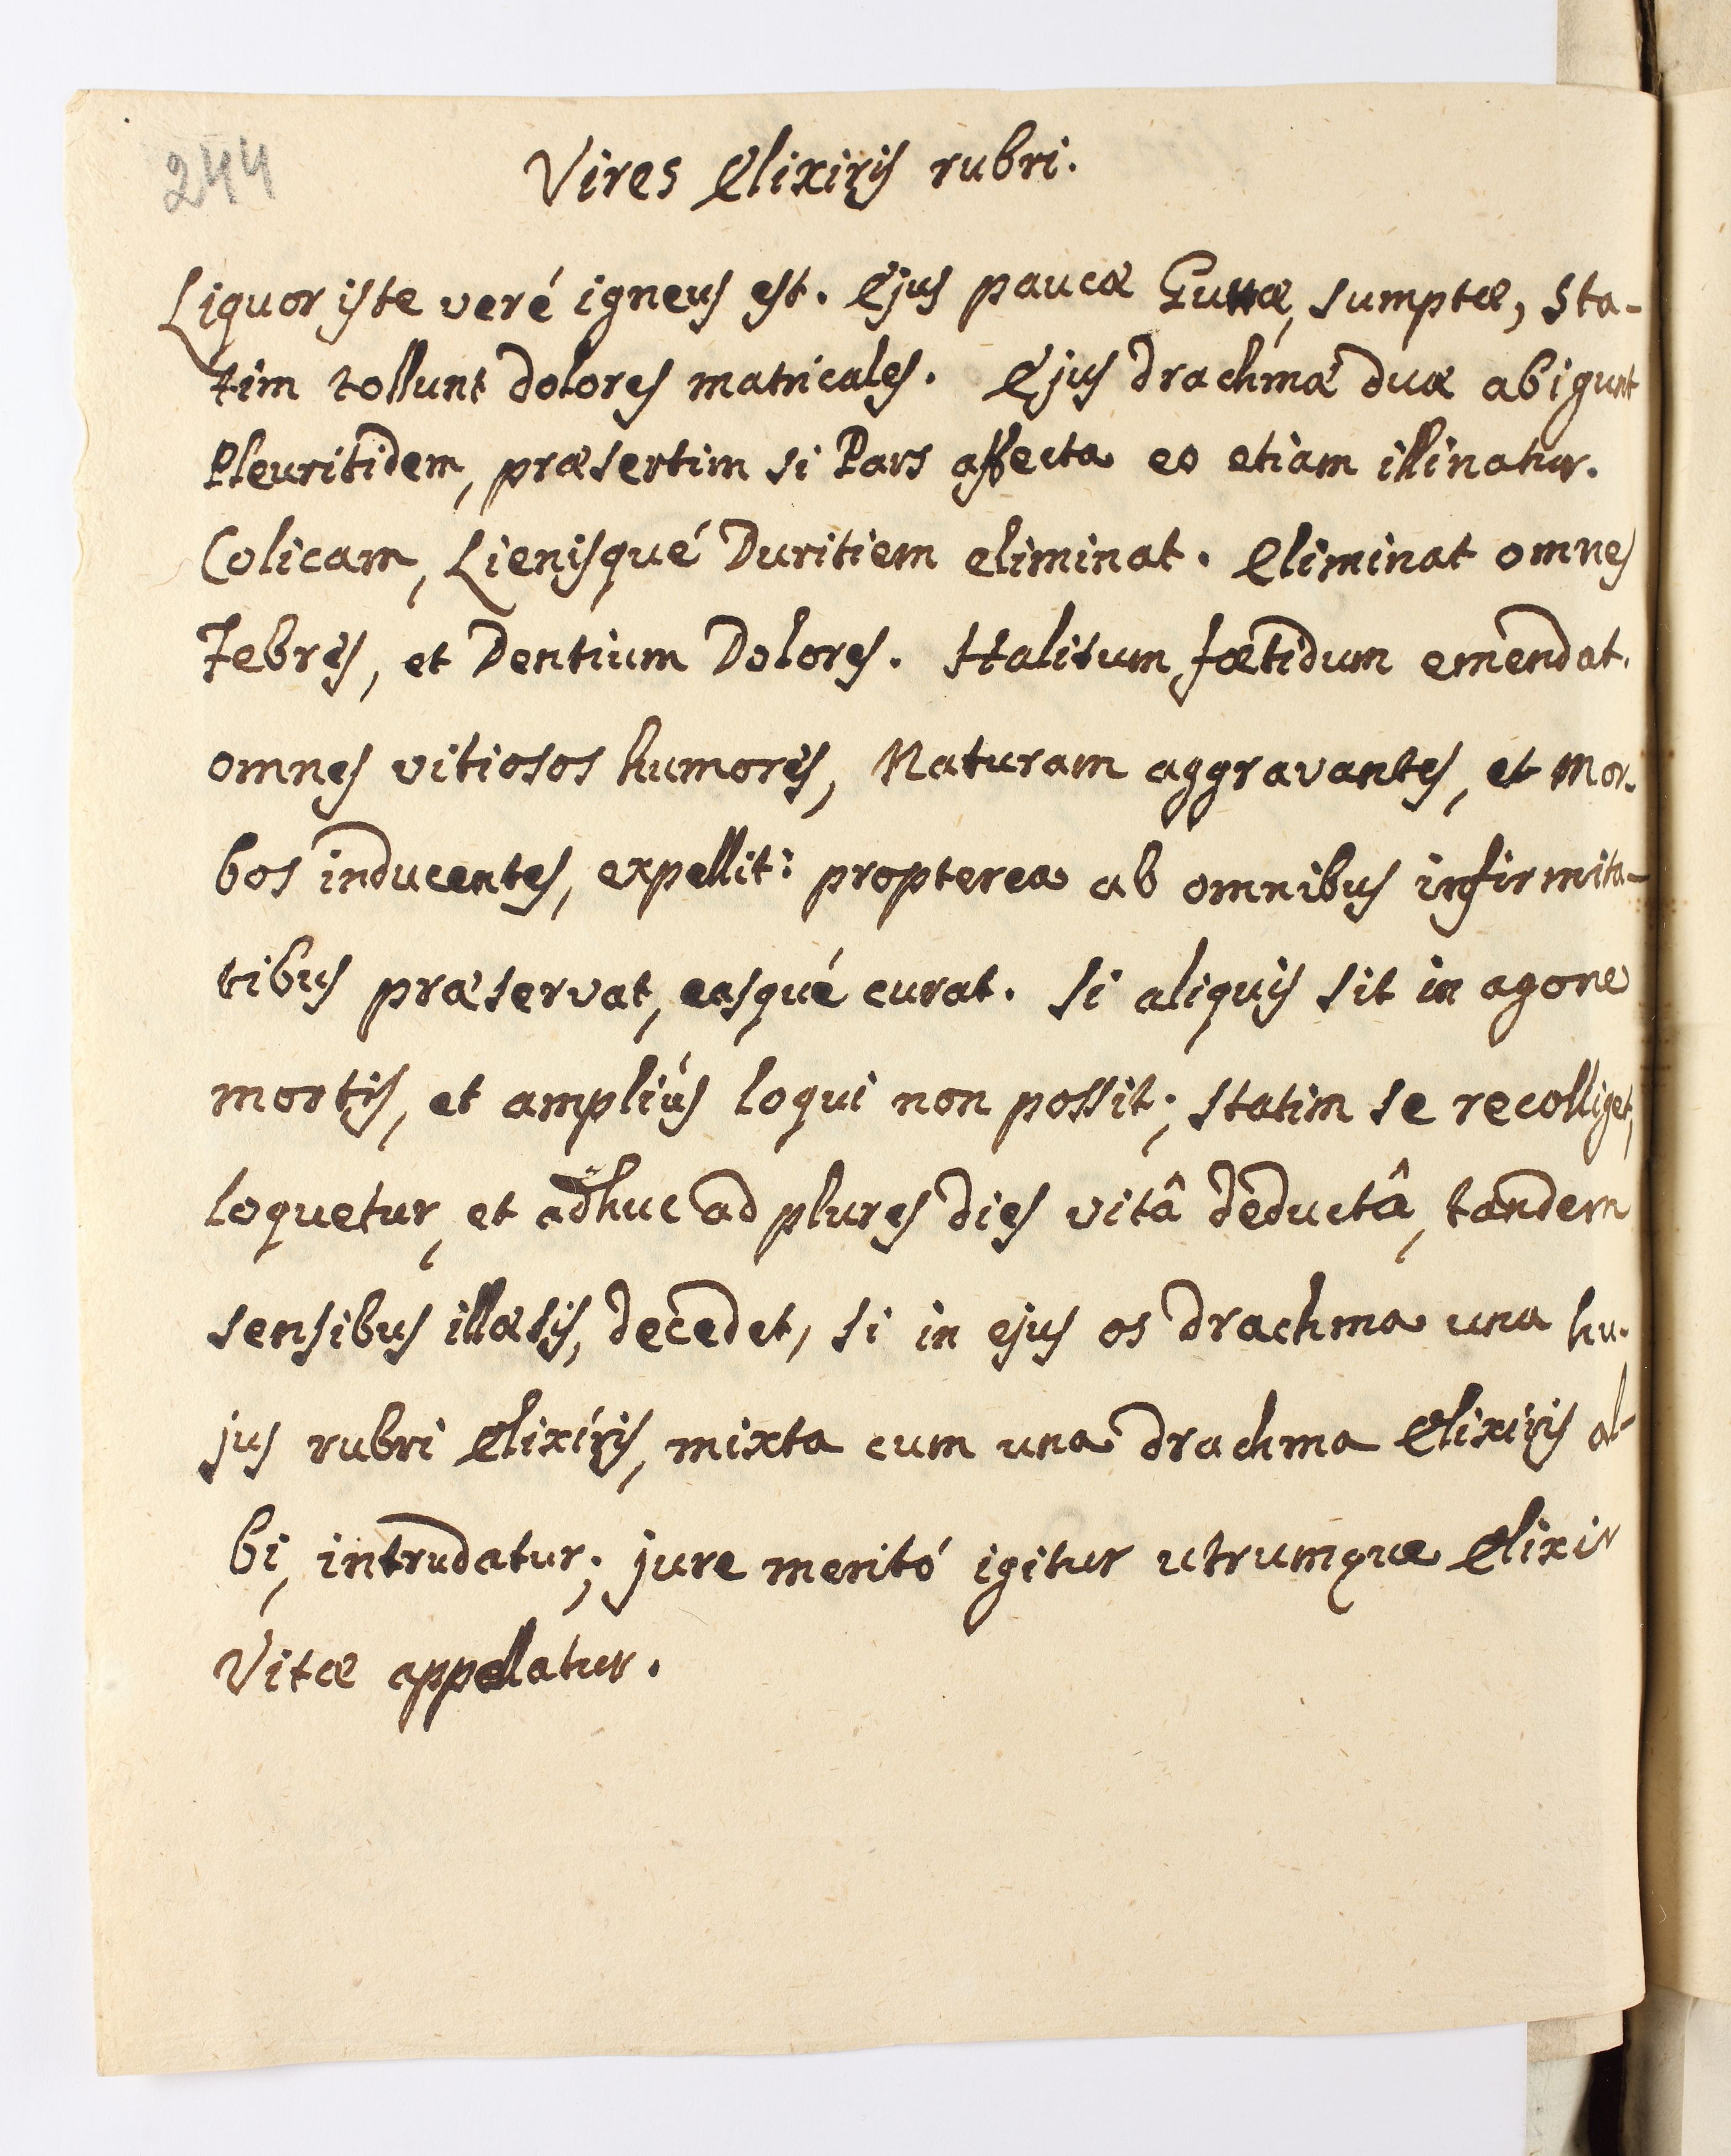 244
Vires Elixiris rubri.
Liquor iste veré igneus est. Ejus paucæ Guttæ, sumptæ, sta-
tim tollunt dolores matricales. Ejus drachmæ duæ abigunt
Pleuritidem, præsertim si Pars affecta eo etiam illinatur.
Colicam, Lienisqué Duritiem eliminat. Eliminat omnes
Febres, et Dentium Dolores. Halitum fœtidum emendat.
omnes vitiosos humores, Naturam aggravantes, et Mor-
bos inducentes, expellit: propterea ab omnibus infirmita-
tibus præservat, easqué curat. Si aliquis sit in agone
mortis, et ampliús loqui non possit; statim se recolliget,
loquetur, et adhuc ad plures dies vitâ deductâ, tandem
sensibus illæsis, decedet, si in ejus os drachma una hu-
jus rubri Elixiris, mixta cum una drachma Elixiris al-
bi, intrudatur; jure meritó igitur utrumque Elixir
Vitæ appellatur.